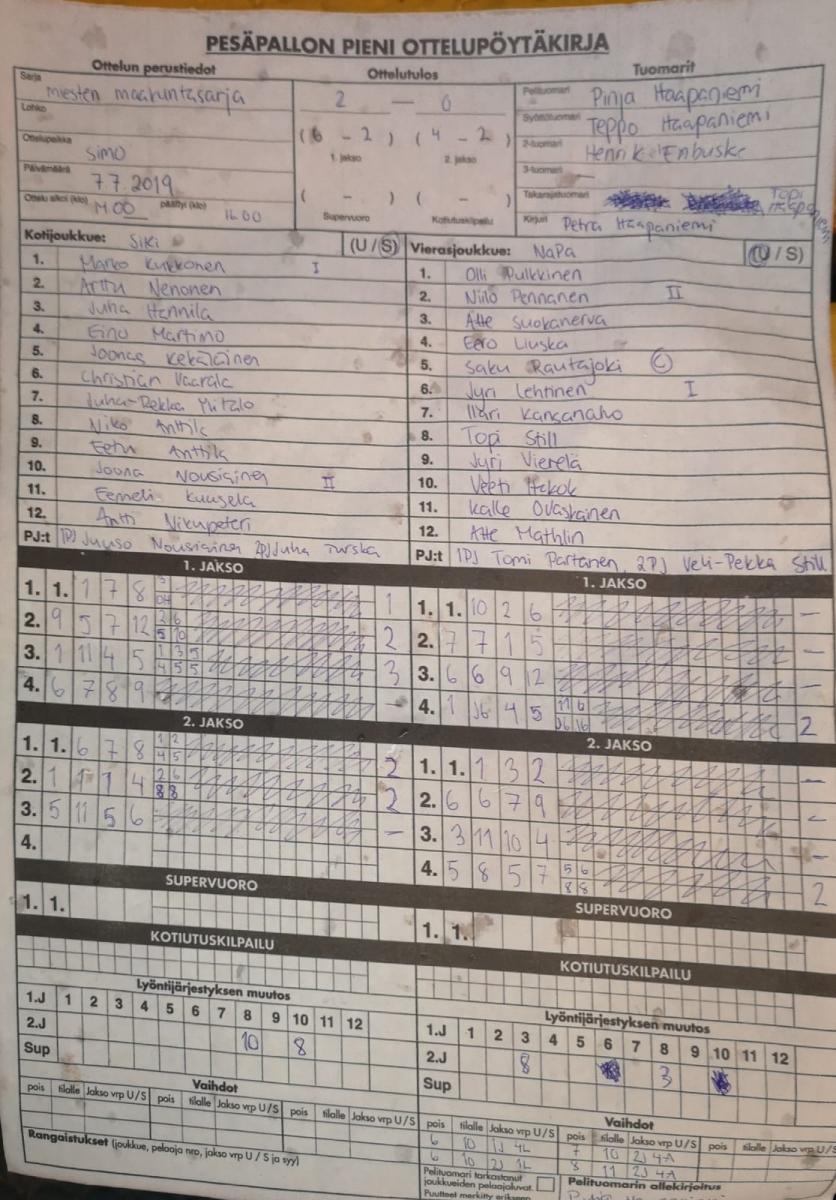 PESÄPALLON PIENI OTTELUPÖYTÄKIRJA
Ottelun perustiedot
Sarja miesten maakuntasarja
Lohko
Ottelupaikka Simo
Päivämäärä 7.7.2019
Ottelu alkoi (klo) 14.00 päättyi (klo) 16.00
Ottelutulos
2 — 0
(6 - 2) (4 - 2)
1. jakso 2. jakso
( - ) ( - )
Supervuoro Kotiutuskilpailu
Tuomarit
Pelituomari Pinja Haapaniemi
Syöttötuomari Teppo Haapaniemi
2-tuomari Henrik Enbuske
3-tuomari —
Takarajatuomari Topi Haapaniemi
Kirjuri Petra Haapaniemi
Kotijoukkue: SiKi (U / S)
1. Marko Kukkonen I
2. Arttu Nenonen
3. Juha Hannila
4. Eino Martimo
5. Joonas Kekäläinen
6. Christian Vaarala
7. Juha-Pekka
8. Niko Anttila
9. Eetu Anttila
10. Joona Nousiainen II
11. Eemeli Kuusela
12. Antti Nikupeteri
PJ:t 1PJ Juuso Nousiainen 2PJ Juha Turska
Vierasjoukkue: NaPa (U / S)
1. Olli Pulkkinen
2. Niilo Pennanen II
3. Atte Suokanerva
4. Eero Liuska
5. Saku Rautajoki C
6. Jyri Lehtinen I
7. Ilari Kansanaho
8. Topi Still
9. Jyri Vierelä
10. Veeti
11. Kalle Ovaskainen
12. Atte Mathlin
PJ:t 1PJ Tomi Partanen, 2PJ Veli-Pekka Still
1. JAKSO
1. 1. 1 7 8 1
2. 9 5 7 12 2 6 5 10 2
3. 1 11 4 5 1 3 5 4 5 5 3
4. 6 7 8 9 —
2. JAKSO
1. 1. 6 7 8 1 2 4 5 2
2. 1 1 1 4 2 6 8 8 2
3. 5 11 5 6 —
4.
SUPERVUORO
1. 1.
KOTIUTUSKILPAILU
1. JAKSO
1. 1. 10 2 6 —
2. 7 7 1 5 —
3. 6 6 9 12 —
4. 1 4 5 11 6 2
2. JAKSO
1. 1. 1 3 2 —
2. 6 6 7 9 —
3. 3 11 10 4 —
4. 5 8 5 7 5 6 8 8 2
SUPERVUORO
1. 1.
KOTIUTUSKILPAILU
Lyöntijärjestyksen muutos
1.J 1 2 3 4 5 6 7 8 9 10 11 12
2.J 10 8
Sup
Vaihdot
pois tilalle Jakso vrp U/S pois tilalle Jakso vrp U/S pois tilalle Jakso vrp U/S
Rangaistukset (joukkue, pelaaja nro, jakso vrp U / S ja syy)
Lyöntijärjestyksen muutos
1.J 1 2 3 4 5 6 7 8 9 10 11 12
2.J 8 3
Sup
Vaihdot
pois tilalle Jakso vrp U/S pois tilalle Jakso vrp U/S pois tilalle Jakso vrp U/S
6 10 1J 4L 7 10 2J 4A
6 10 2J 1L 8 11 2J 4A
Pelituomari tarkastanut joukkueiden pelaajaluvat.
Puutteet merkitty erikseen
Pelituomarin allekirjoitus